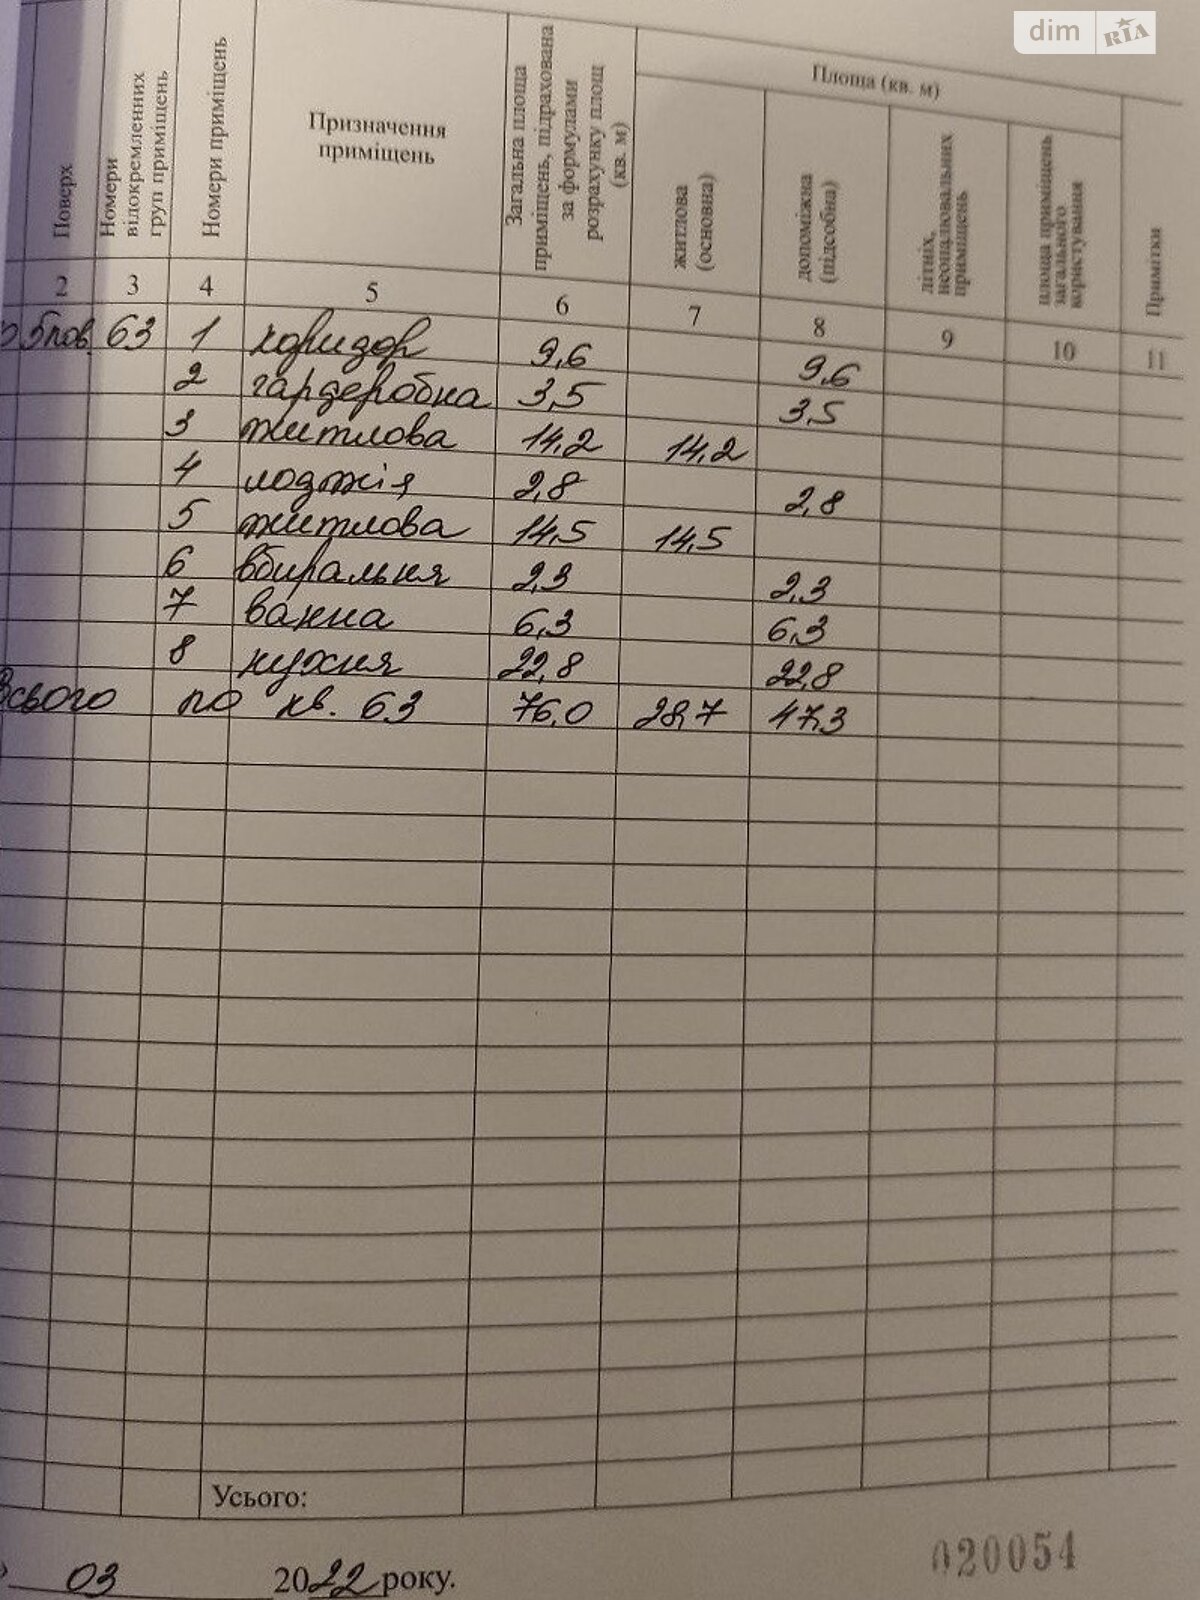 dim RIA
Поверх
Номери відокремленних груп приміщень
Номери приміщень
Призначення приміщень
Загальна площа приміщень, підрахована за формулами розрахунку площ (кв. м)
Площа (кв. м)
житлова (основна)
допоміжна (підсобна)
літніх, неопалювальних приміщень
площа приміщень загального користування
Примітки
2 3 4 5 6 7 8 9 10 11
5пов. 63 1 коридор 9,6 9,6
2 гардеробна 3,5 3,5
3 житлова 14,2 14,2
4 лоджія 2,8 2,8
5 житлова 14,5 14,5
6 вбиральня 2,3 2,3
7 ванна 6,3 6,3
8 кухня 22,8 22,8
Всього по кв. 63 76,0 28,7 47,3
Усього:
03 2022 року.
020054